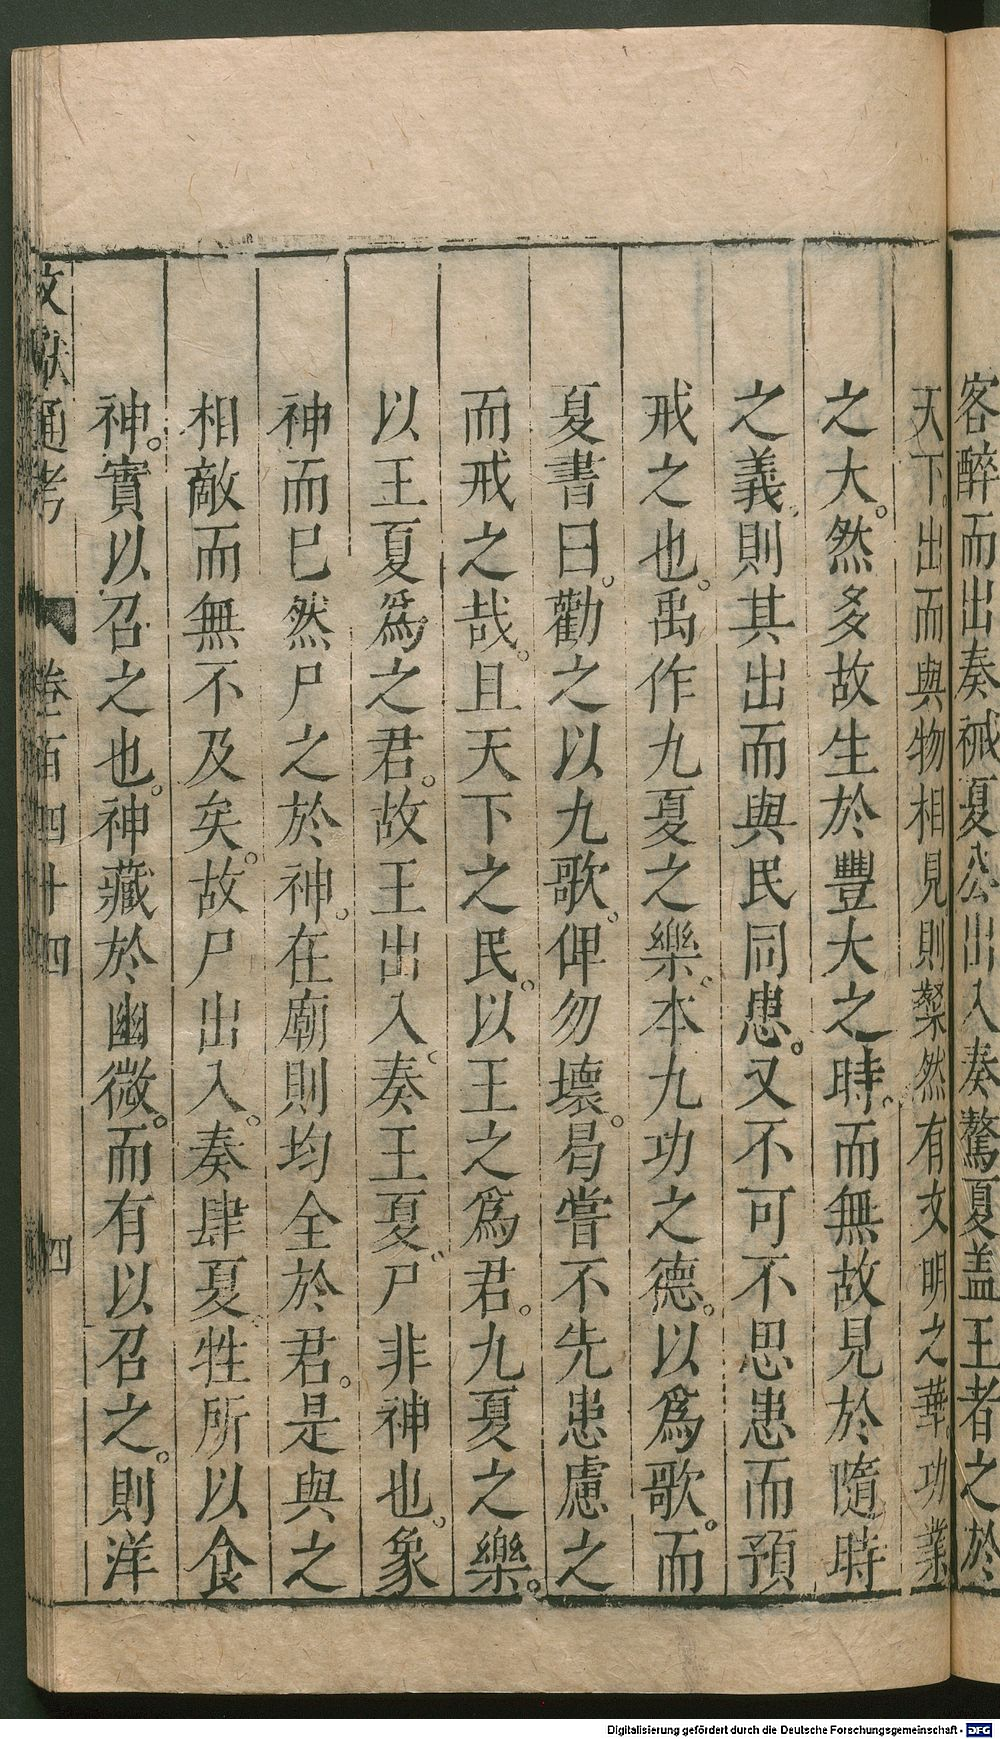 客醉而出奏祴夏公出入奏驁夏盖王者之於
天下出而與物相見則粲然有文明之華功業
之大。然多故生於豐大之時。而無故見於隨時
之義。則其出而與民同患。又不可不思患而預
戒之也。禹作九夏之樂。本九功之德。以爲歌。而
夏書曰。勸之以九歌。俾勿壞。曷嘗不先患慮之
而戒之哉。且天下之民。以王之爲君。九夏之樂。
以王夏爲之君。故王出入。奏王夏。尸非神也。象
神而巳然尸之於神。在廟則均全於君。是與之
相敵而無不及矣。故尸出入。奏肆夏。牲所以食
神。實以召之也。神藏於幽微。而有以召之。則洋
文獻通考 卷一百四十四 四
Digitalisierung gefördert durch die Deutsche Forschungsgemeinschaft - DFG